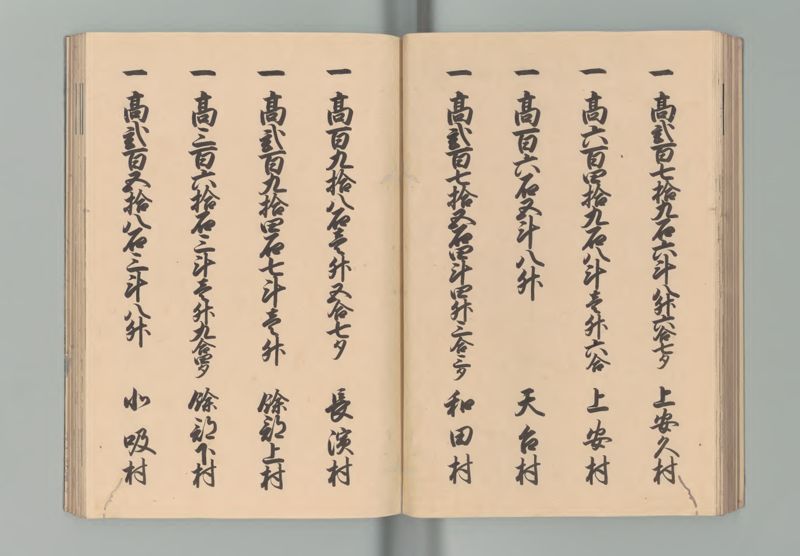 一 高弐百七拾九石六斗八升六合七夕 上安久村
一 高六百四拾九石八斗壱升六合 上安村
一 高百六石五斗八升 天台村
一 高弐百七拾五石四斗四升三合三夕 和田村
一 高百九拾八石壱升五合七夕 長濱村
一 高弐百九拾四石七斗壱升 餘部上村
一 高三百六拾石三斗壱升九合四夕 餘部下村
一 高弐百五拾八石三斗八升 北吸村